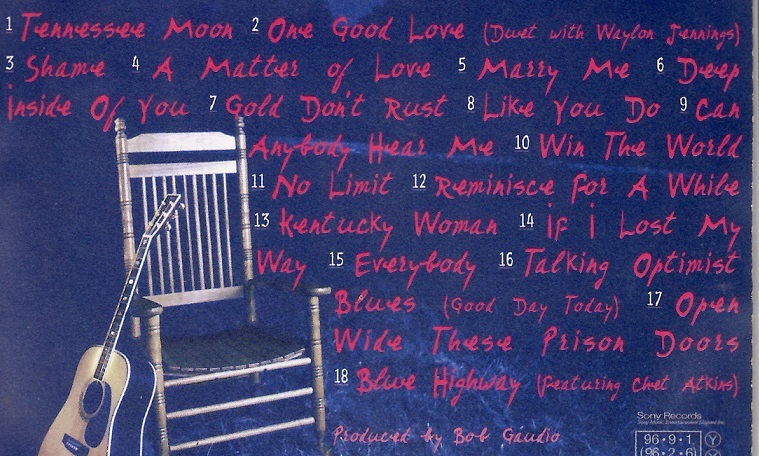 1 Tennessee Moon 2 One Good Love (Duet with Waylon Jennings)
3 Shame 4 A Matter of Love 5 Marry Me 6 Deep
Inside Of You 7 Gold Don't Rust 8 Like You Do 9 Can
Anybody Hear Me 10 Win The World
11 No Limit 12 Reminisce For A While
13 Kentucky Woman 14 If I Lost My
Way 15 Everybody 16 Talking Optimist
Blues (Good Day Today) 17 Open
Wide These Prison Doors
18 Blue Highway (Featuring Chet Atkins)
Produced by Bob Gaudio
Sony Records
96·9·1 Y
(96·2·6)